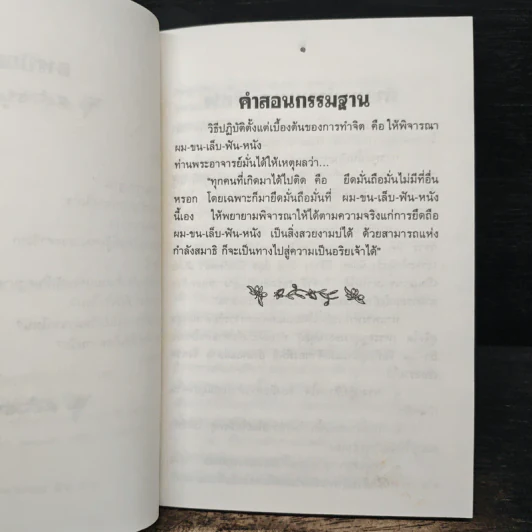 คำสอนกรรมฐาน
วิธีปฏิบัติตั้งแต่เบื้องต้นของการทำจิต คือ ให้พิจารณา
ผม-ขน-เล็บ-ฟัน-หนัง
ท่านพระอาจารย์มั่นได้ให้เหตุผลว่า...
"ทุกคนที่เกิดมาได้ไปติด คือ ยึดมั่นถือมั่นไม่มีที่อื่น
หรอก โดยเฉพาะก็มายึดมั่นถือมั่นที่ ผม-ขน-เล็บ-ฟัน-หนัง
นี้เอง ให้พยายามพิจารณาให้ได้ตามความจริงแก่การยึดถือ
ผม-ขน-เล็บ-ฟัน-หนัง เป็นสิ่งสวยงามบ่ได้ ด้วยสามารถแห่ง
กำลังสมาธิ ก็จะเป็นทางไปสู่ความเป็นอริยเจ้าได้"